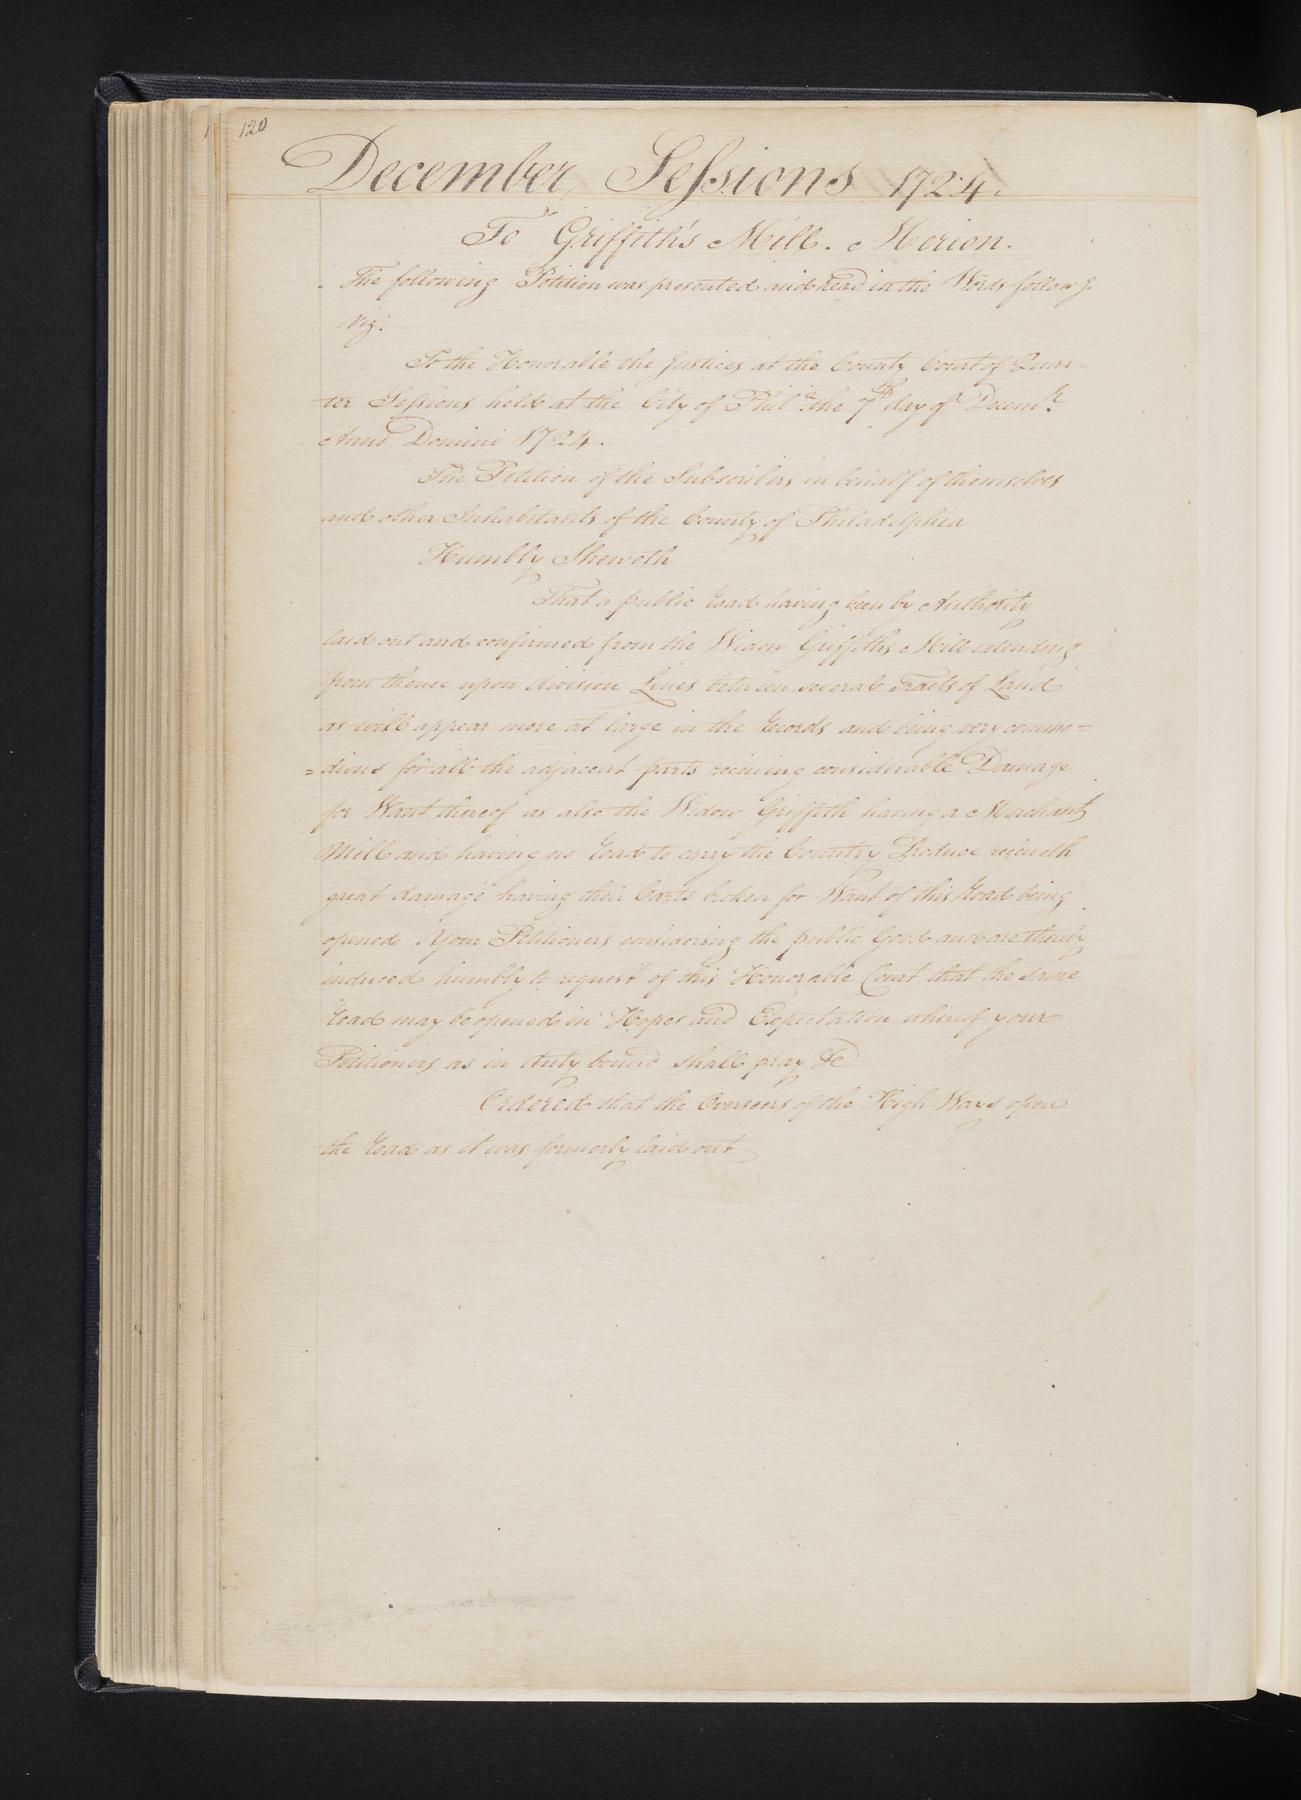 120
December Sessions 1724.
To Griffith's Mill. Merion.
The following Petition was presented and Read in the Words followg.
viz:
To the Honorable the Justices at the County Court of Quar-
ter Sessions held at the City of Phila. the 7th day of Decemr.
Anno Domini 1724.
The Petition of the Subscribers in behalf of themselves
and other Inhabitants of the County of Philadelphia
Humbly Sheweth
That a public Road having been by Authority
laid out and confirmed from the Widow Griffiths Mill extending
from thence upon division Lines between several Tracts of Land
as will appear more at large in the Records and being very commo-
=dious for all the adjacent parts receiving considerable Damage
for Want thereof as also the Widow Griffith having a Merchant
Mill and having no Road to carry the Country Produce receiveth
great damage having their Carts broken for Want of this Road being
opened. Your Petitioners considering the public Good and are thereby
induced humbly to request of this Honorable Court that the same
Road may be opened in Hopes and Expectation whereof your
Petitioners as in duty bound shall pray &c
Ordered that the Overseers of the High Ways open
the Road as it was formerly laid out